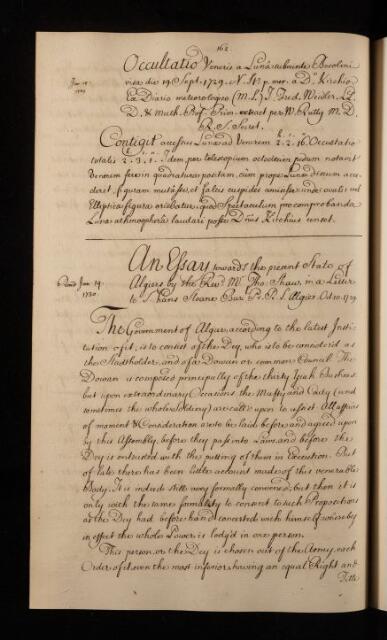 162
Occultatio Veneris a Luna
visa die 19 Sept. 1729. N. St. p. mer. a Dno Kirchio
Fred. Weidler.
D. & Math. Prof. per W. Rutty M.D.
R. S. Secret.
Contigit accessus Lunæ ad Venerem 2. 2. 16. Occultatio
totalis 2. 3. 1. Idem per telescopium octodecim pedum notavit
Venerem fere in quadratura positam, cum prope Lunæ discum
figuram mutasse, et falsis cuspides
Elliptica figura quod Spectaculum pro comprobanda
Lunæ athmosphæra laudari posse Dnus Kirchius censet.
An Essay towards the present State of
Algiers by the Revd. Mr. Tho. Shaw, in a Letter
to Sr. Hans Sloane Bart. Pr. R. S. Algiers Oct. 10. 1729
1730.
The Government of Algiers according to the latest Insti-
tution of it, is to consist of the Dey, who is to be considered as
the Stadtholder, and of a Dowan or common Council. The
Dowan is composed principally of the thirty
but upon extraordinary Occasions the Mufty and Cady (and
sometimes the whole Soldiery) are called upon to assist. All affairs
of moment & Consideration are to be laid before and agreed upon
by this Assembly, before they pass into Laws, and before the
Dey is entrusted with the putting of them in Execution. But
of late there has been little account made of this venerable
Body. It is indeed still very formally convened; but then it is
only with the same formality to consent to such Propositions
as the Dey had before hand concerted with himself, whereby
in effect the whole Power is lodg'd in one person.
This person, or the Dey is chosen out of the Army, each
Order of it even the most inferior, having an equal Right and
Title